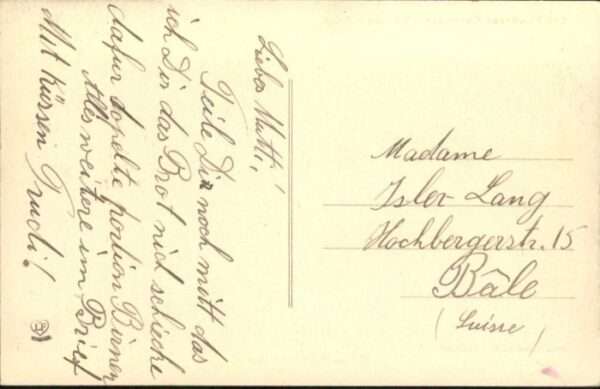 Liebes Mutti,
Teile Dir noch mitt das
ich Dir das Brot nich schicke
dafür dopelte portion Birnen
Alles weitere im Brief
Mit Küssen Trudi!
Madame
Isler Lang
Hochbergerstr. 15
Bâle
(Suisse)